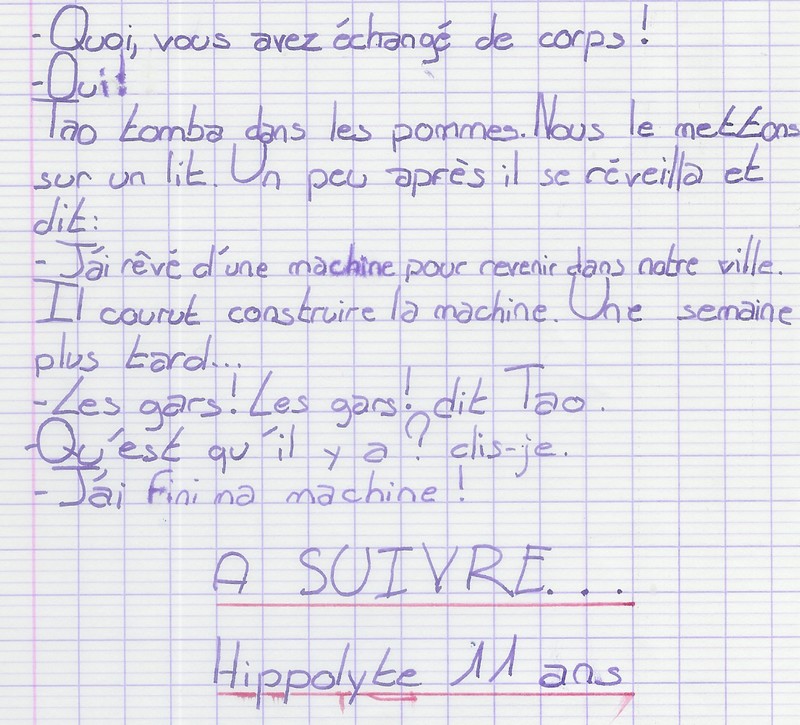 - Quoi, vous avez échangé de corps !
- Oui !
Tao tomba dans les pommes. Nous le mettons
sur un lit. Un peu après il se réveilla et
dit :
- J'ai rêvé d'une machine pour revenir dans notre ville.
Il courut construire la machine. Une semaine
plus tard...
- Les gars ! Les gars ! dit Tao.
- Qu'est qu'il y a ? dis-je.
- J'ai fini ma machine !
A SUIVRE...
Hippolyte 11 ans